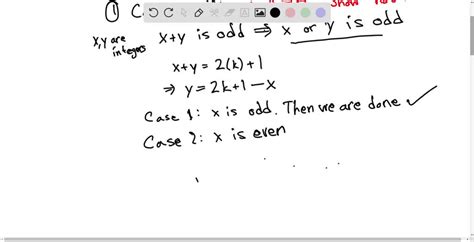 ① C
show
x,y are integers
x+y is odd ⟹ x or y is odd
x+y = 2(k)+1
⟹ y = 2k+1-x
Case 1: x is odd. Then we are done ✓
Case 2: x is even